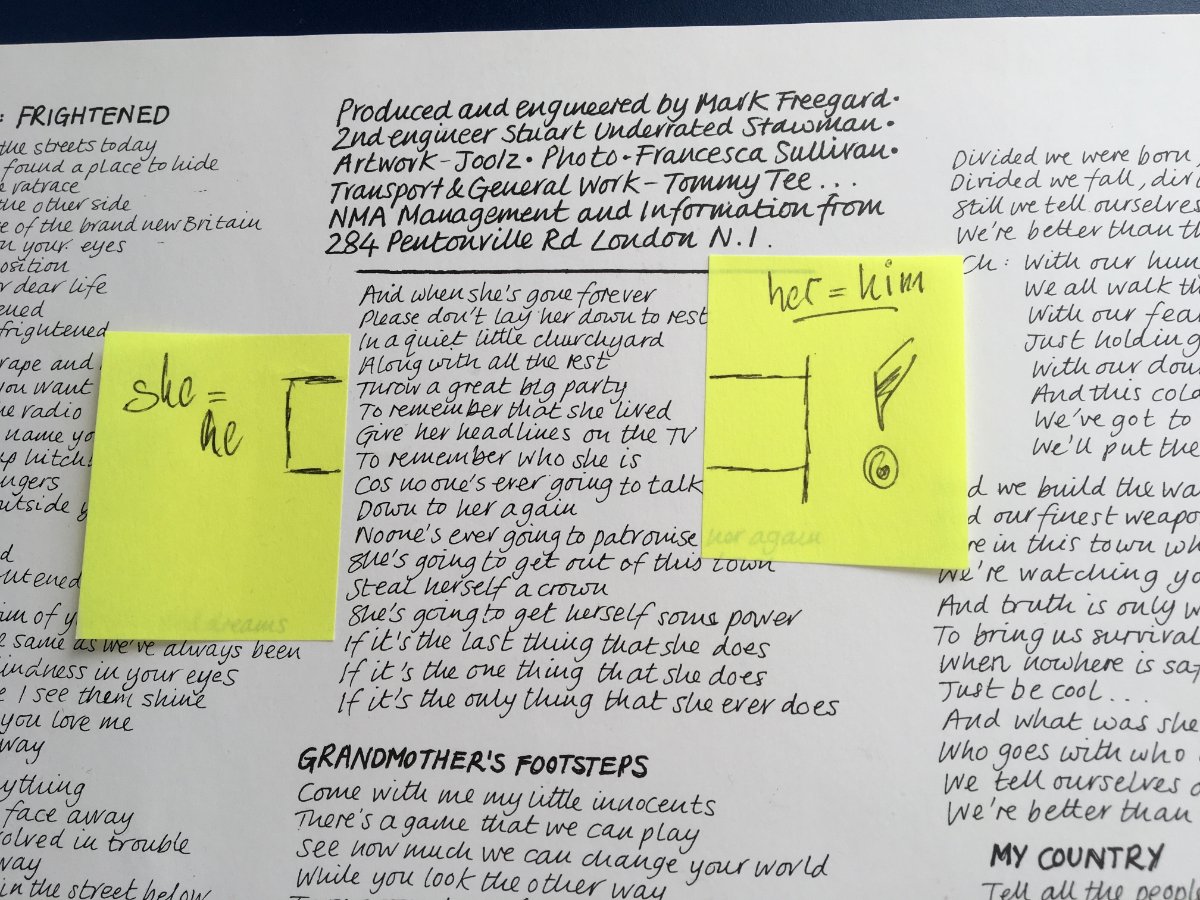 : FRIGHTENED
the streets today
found a place to hide
ratrace
the other side
of the brand new Britain
your eyes
dear life
frightened
rape and
you want
radio
name
hitch
outside
same as we've always been
kindness in your eyes
I see them shine
you love me
way
face away
in trouble
way
in the street below
she =
he
dreams
Produced and engineered by Mark Freegard.
2nd engineer Stuart Underrated Stawman.
Artwork - Joolz. Photo. Francesca Sullivan.
Transport & General Work - Tommy Tee...
NMA Management and Information from
284 Pentonville Rd London N.1.
And when she's gone forever
Please don't lay her down to rest
In a quiet little churchyard
Along with all the rest
Throw a great big party
To remember that she lived
Give her headlines on the TV
To remember who she is
Cos no one's ever going to talk
Down to her again
Noone's ever going to patronise her again
She's going to get out of this town
Steal herself a crown
She's going to get herself some power
If it's the last thing that she does
If it's the one thing that she does
If it's the only thing that she ever does
GRANDMOTHER'S FOOTSTEPS
Come with me my little innocents
There's a game that we can play
See how much we can change your world
While you look the other way
her = him
!
Divided we were born,
Divided we fall,
Still we tell ourselves
We're better than
Ch: With our
We all walk
With our
Just holding
With our
And this
We've got to
We'll put the
we build the
our finest
in this town
We're watching
And truth is only
To bring us survival
When nowhere is
Just be cool...
And what was she
Who goes with who
We tell ourselves
We're better than
MY COUNTRY
Tell all the people